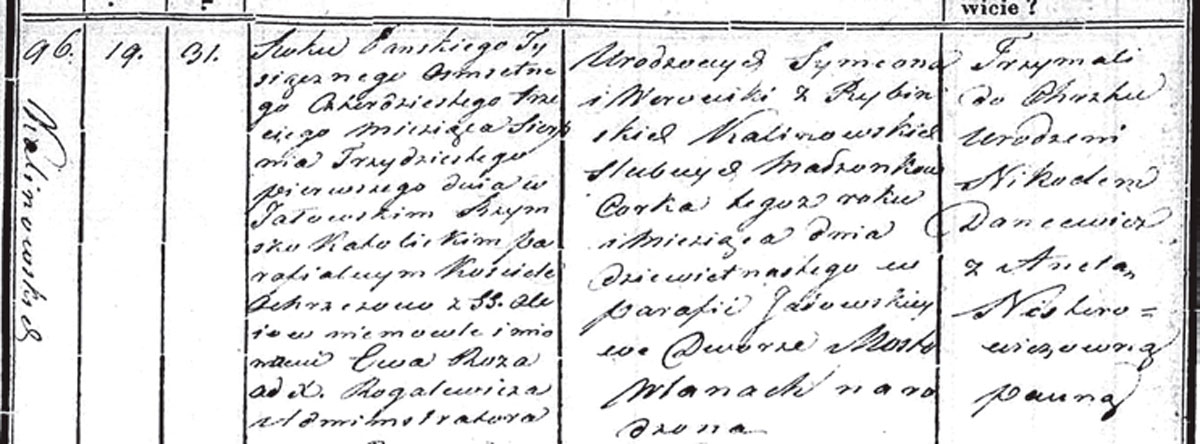 wicie ?
96. 19. 31.
Kalinowskich
Roku Pańskiego Ty
siącznego Osmsetne
go Czterdziestego trze
ciego Miesiąca Sierp
nia Trzydziestego
pierwszego dnia w
Jałowskim Rzym
sko Katolickim pa
rafialnym Kościele
Ochrzczono z SS. Ole
iow niemowle imio
nami Ewa Roza
od X. Rogalewicza
Administratora
Urodzonych Symeona
i Weroniki z Rybin
skich Kalinowskich
Slubnych Małżonkow
Corka tegoz roku
i Miesiąca dnia
dziewietnastego w
parafii Jałowskiey
we Dworze Mosto
wlanach naro
dzona
Trzymali
do Chrztu
Urodzeni
Nikodem
Dancewicz
z Anelą
Nestoro=
wiczowną
panną